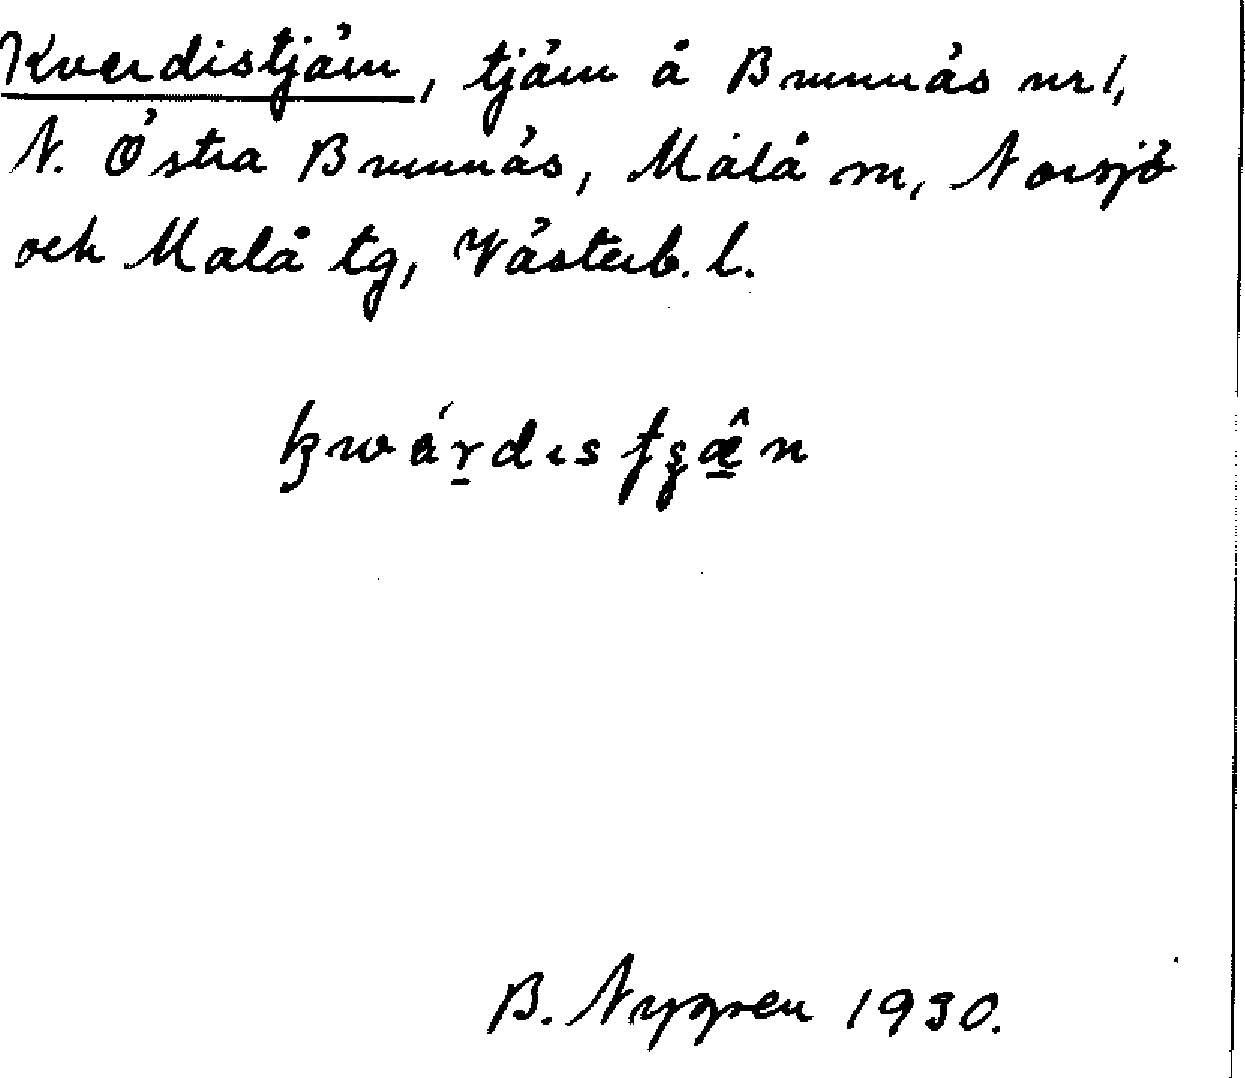 Kverdistjärn, tjärn å Brunnäs nr 1,
N. Östra Brunnäs, Malå sn, Norsjö
och Malå tg, Västerb. l.
B. Nygren 1930.